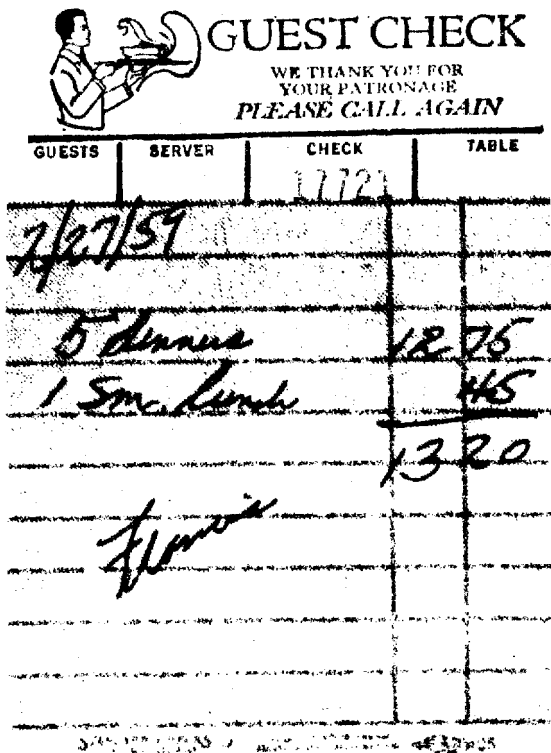 GUEST CHECK
WE THANK YOU FOR
YOUR PATRONAGE
PLEASE CALL AGAIN
GUESTS SERVER CHECK TABLE
17721
7/27/59
5 dinners 12 75
1 Sm. Lunch 45
13 20